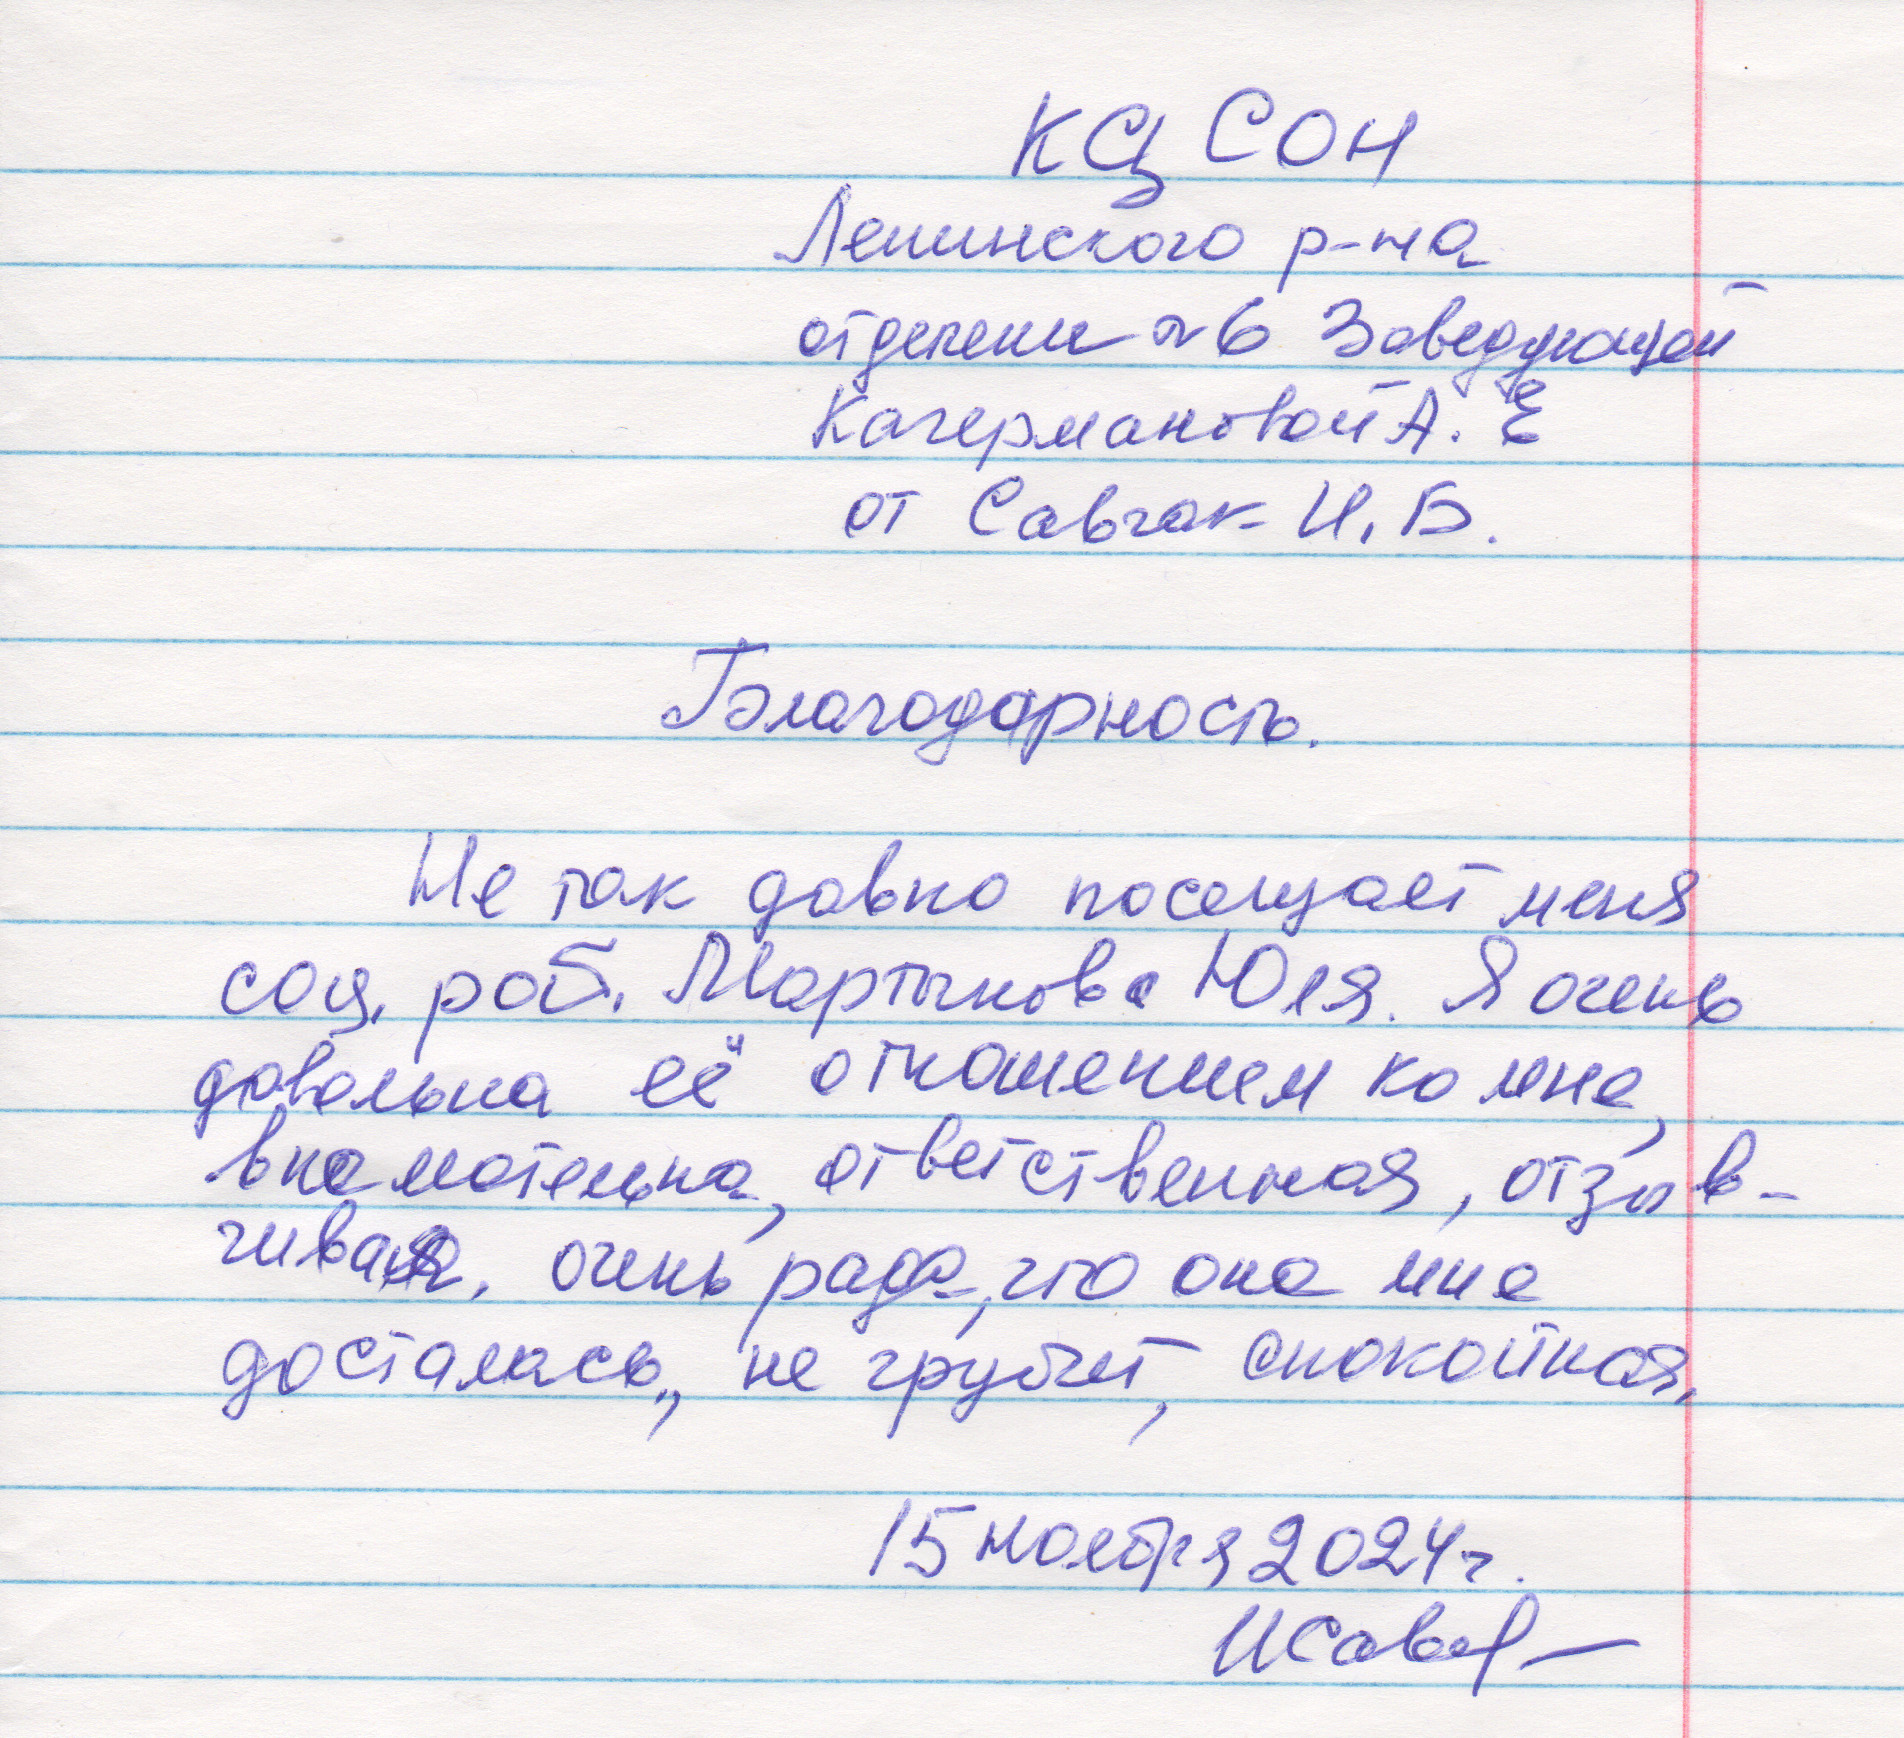 КЦСОН
Ленинского р-на
отделени № 6 Заведующей
Качермановой А. Е
от Савчак И. Б.
Благодарность.
Не так давно посещает меня
соц. раб. Мартынова Юля. Я очень
довольна её отношением ко мне,
внемательна, ответственная, отзыв-
чивая, очень рада, что она мне
досталась, не грубит, спокойная.
15 ноября 2024 г.